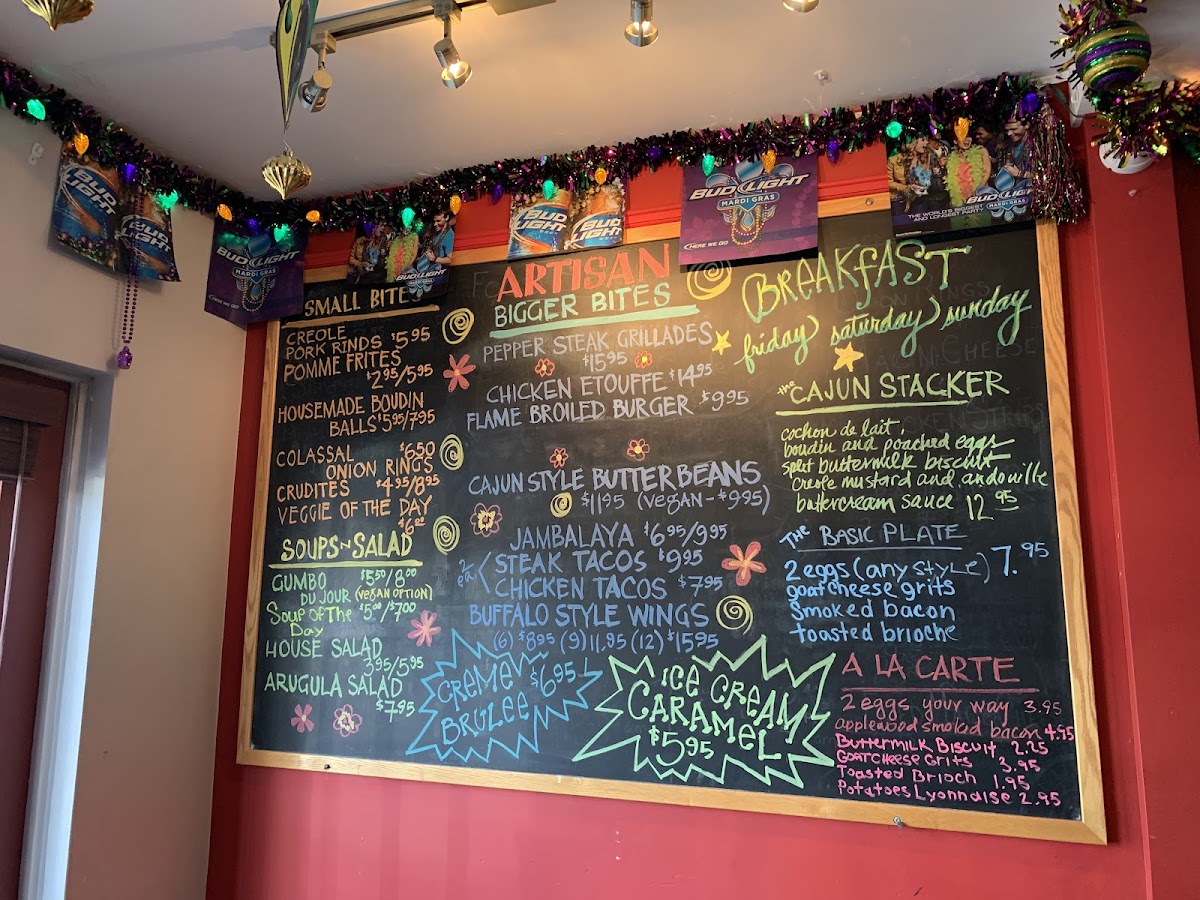 BUD LIGHT
BUD LIGHT
BUD LIGHT
MARDI GRAS
HERE WE GO
BUD LIGHT
MARDI GRAS
BUD LIGHT
BUD LIGHT
BUD LIGHT
MARDI GRAS
HERE WE GO
THE WORLD'S BIGGEST
AND LONGEST PARTY
BUD LIGHT
MARDI GRAS
SMALL BITE
CREOLE
PORK RINDS $5.95
POMME FRITES
$2.95/5.95
HOUSEMADE BOUDIN
BALLS $5.95/7.95
COLASSAL $6.50
ONION RINGS
CRUDITES $4.95/8.95
VEGGIE OF THE DAY
$6.00
SOUPS~N~SALAD
GUMBO $5.50/8.00
DU JOUR (vegan OPTION)
Soup of the $5.00/$7.00
Day
HOUSE SALAD
3.95/5.95
ARUGULA SALAD
$7.95
ARTISAN
BIGGER BITES
PEPPER STEAK GRILLADES
$15.95
CHICKEN ETOUFFE $14.95
FLAME BROILED BURGER $9.95
CAJUN STYLE BUTTERBEANS
$11.95 (VEGAN-$9.95)
JAMBALAYA $6.95/9.95
2/ea < STEAK TACOS $9.95
CHICKEN TACOS $7.95
BUFFALO STYLE WINGS
(6) $8.95 (9) 11.95 (12) $15.95
CREME $6.95
BRULEE
ICE CREAM
CARAMEL
$5.95
BREAKFAST
friday saturday sunday
the CAJUN STACKER
cochon de lait,
boudin and poached eggs
split buttermilk biscuit
creole mustard and andouille
buttercream sauce 12.95
THE BASIC PLATE
2 eggs (any style) 7.95
goat cheese grits
Smoked bacon
toasted brioche
A LA CARTE
2 eggs your way 3.95
applewood smoked bacon 4.95
Buttermilk Biscuit 2.25
Goat Cheese Grits 3.95
Toasted Brioch 1.95
Potatoes Lyonnaise 2.95